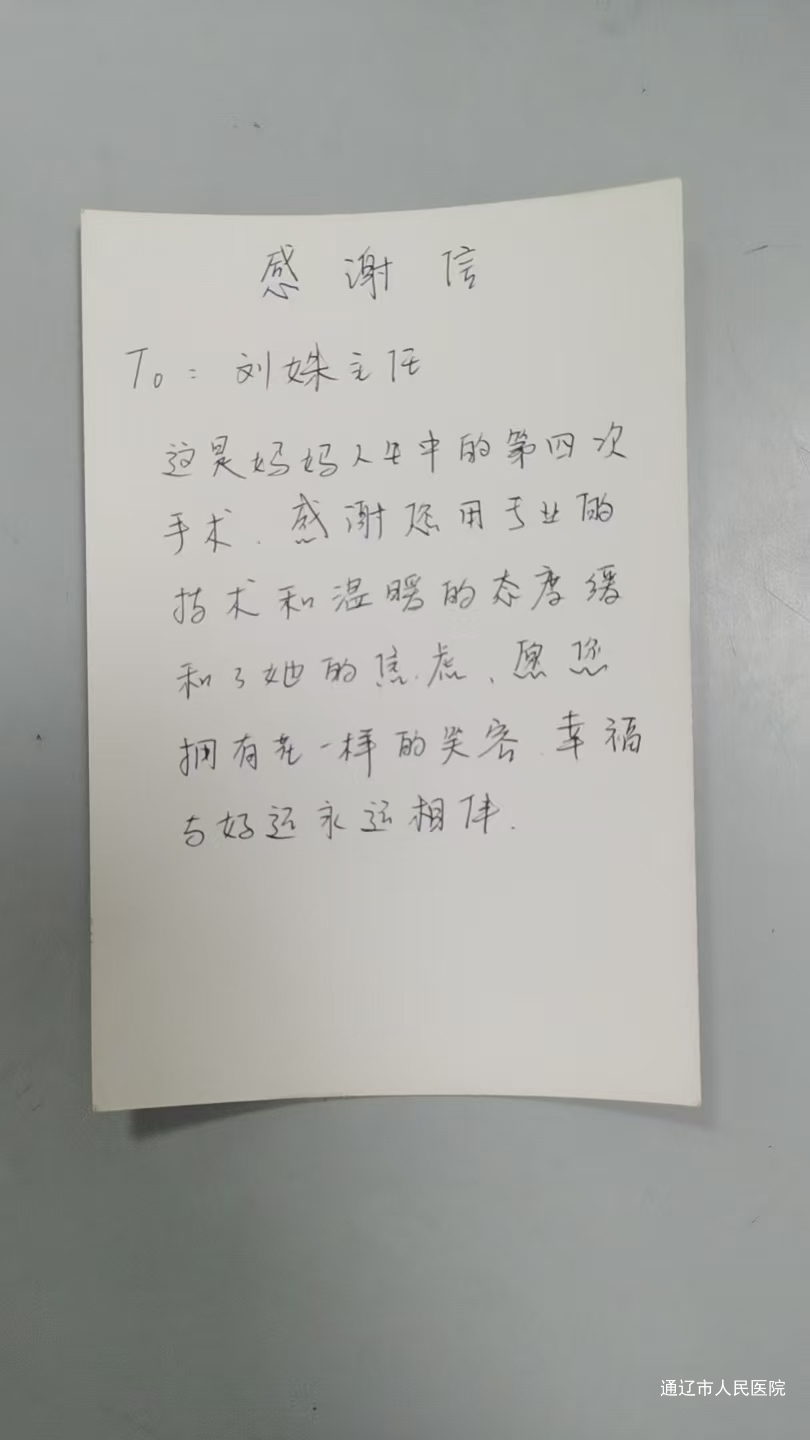 感谢信
To：刘姝主任
这是妈妈人生中的第四次
手术．感谢您用专业的
技术和温暖的态度缓
和了她的焦虑、愿您
拥有花一样的笑容．幸福
与好运永远相伴．
通辽市人民医院